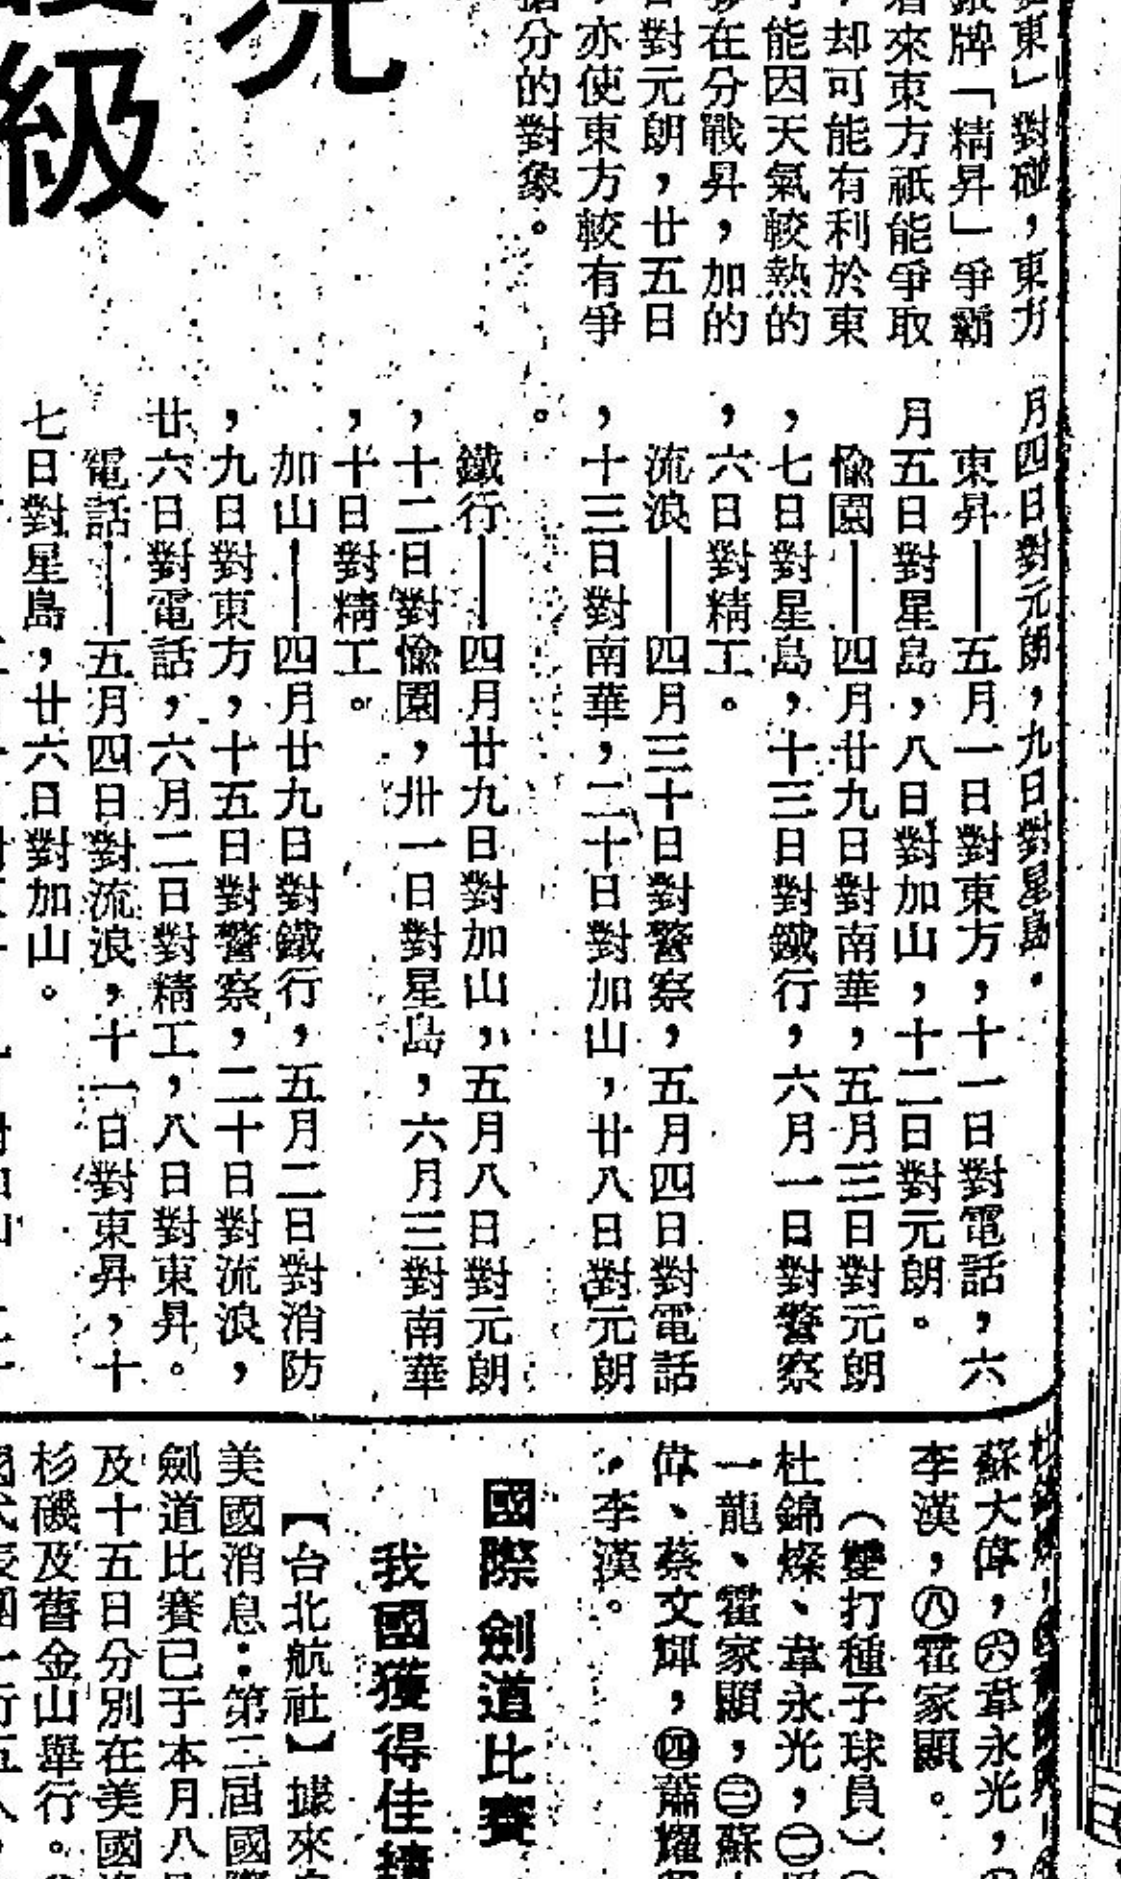 東」對碰，東方
銀牌「精昇」爭霸
看來東方祇能爭取
，却可能有利於東
能因天氣較熱的
在分戰昇，加的
對元朗，廿五日
，亦使東方較有爭
搶分的對象。
級
月四日對元朗，九日對星島。
東昇——五月一日對東方，十一日對電話，六
月五日對星島，八日對加山，十二日對元朗。
愉園——四月廿九日對南華，五月三日對元朗
，七日對星島，十三日對鐵行，六月一日對警察
，六日對精工。
流浪——四月三十日對警察，五月四日對電話
，十三日對南華，二十日對加山，廿八日對元朗
。
鐵行——四月廿九日對加山，五月八日對元朗
，十二日對愉園，卅一日對星島，六月三對南華
，十日對精工。
加山——四月廿九日對鐵行，五月二日對消防
，九日對東方，十五日對警察，二十日對流浪，
廿六日對電話，六月二日對精工，八日對東昇。
電話——五月四日對流浪，十一日對東昇，十
七日對星島，廿六日對加山。
蘇大偉，㊅韋永光，
李漢，㊇霍家顯。
（雙打種子球員）
杜錦燦、韋永光，㊁
一龍、霍家顯，㊂蘇
偉、蔡文輝，㊃蕭耀
、李漢。
國際劍道比賽
我國獲得佳績
【台北航社】據來自
美國消息：第二屆國際
劍道比賽已于本月八日
及十五日分別在美國洛
杉磯及舊金山舉行。
代表團一行五人，